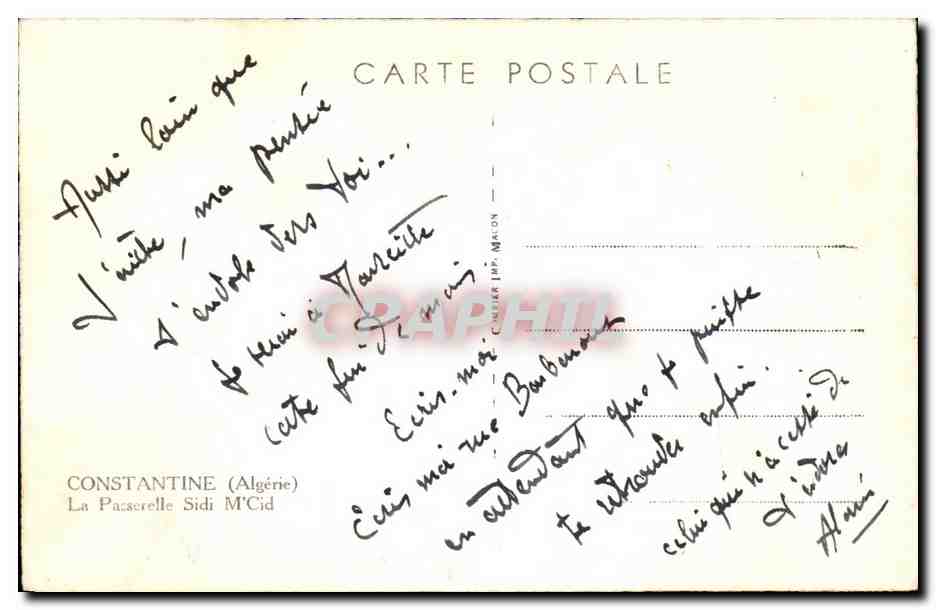 CARTE POSTALE
Aussi loin que
j'existe, ma pensée
s'envole vers toi...
Je serai à Marseille
cette fin de mois.
Ecris-moi
Ecris moi rue
en attendant que je puisse
te retrouver enfin.
celui qui n'a cessé de
t'aimer
CONSTANTINE (Algérie)
La Passerelle Sidi M'Cid
COMBIER IMP. MACON
CPAPHIL